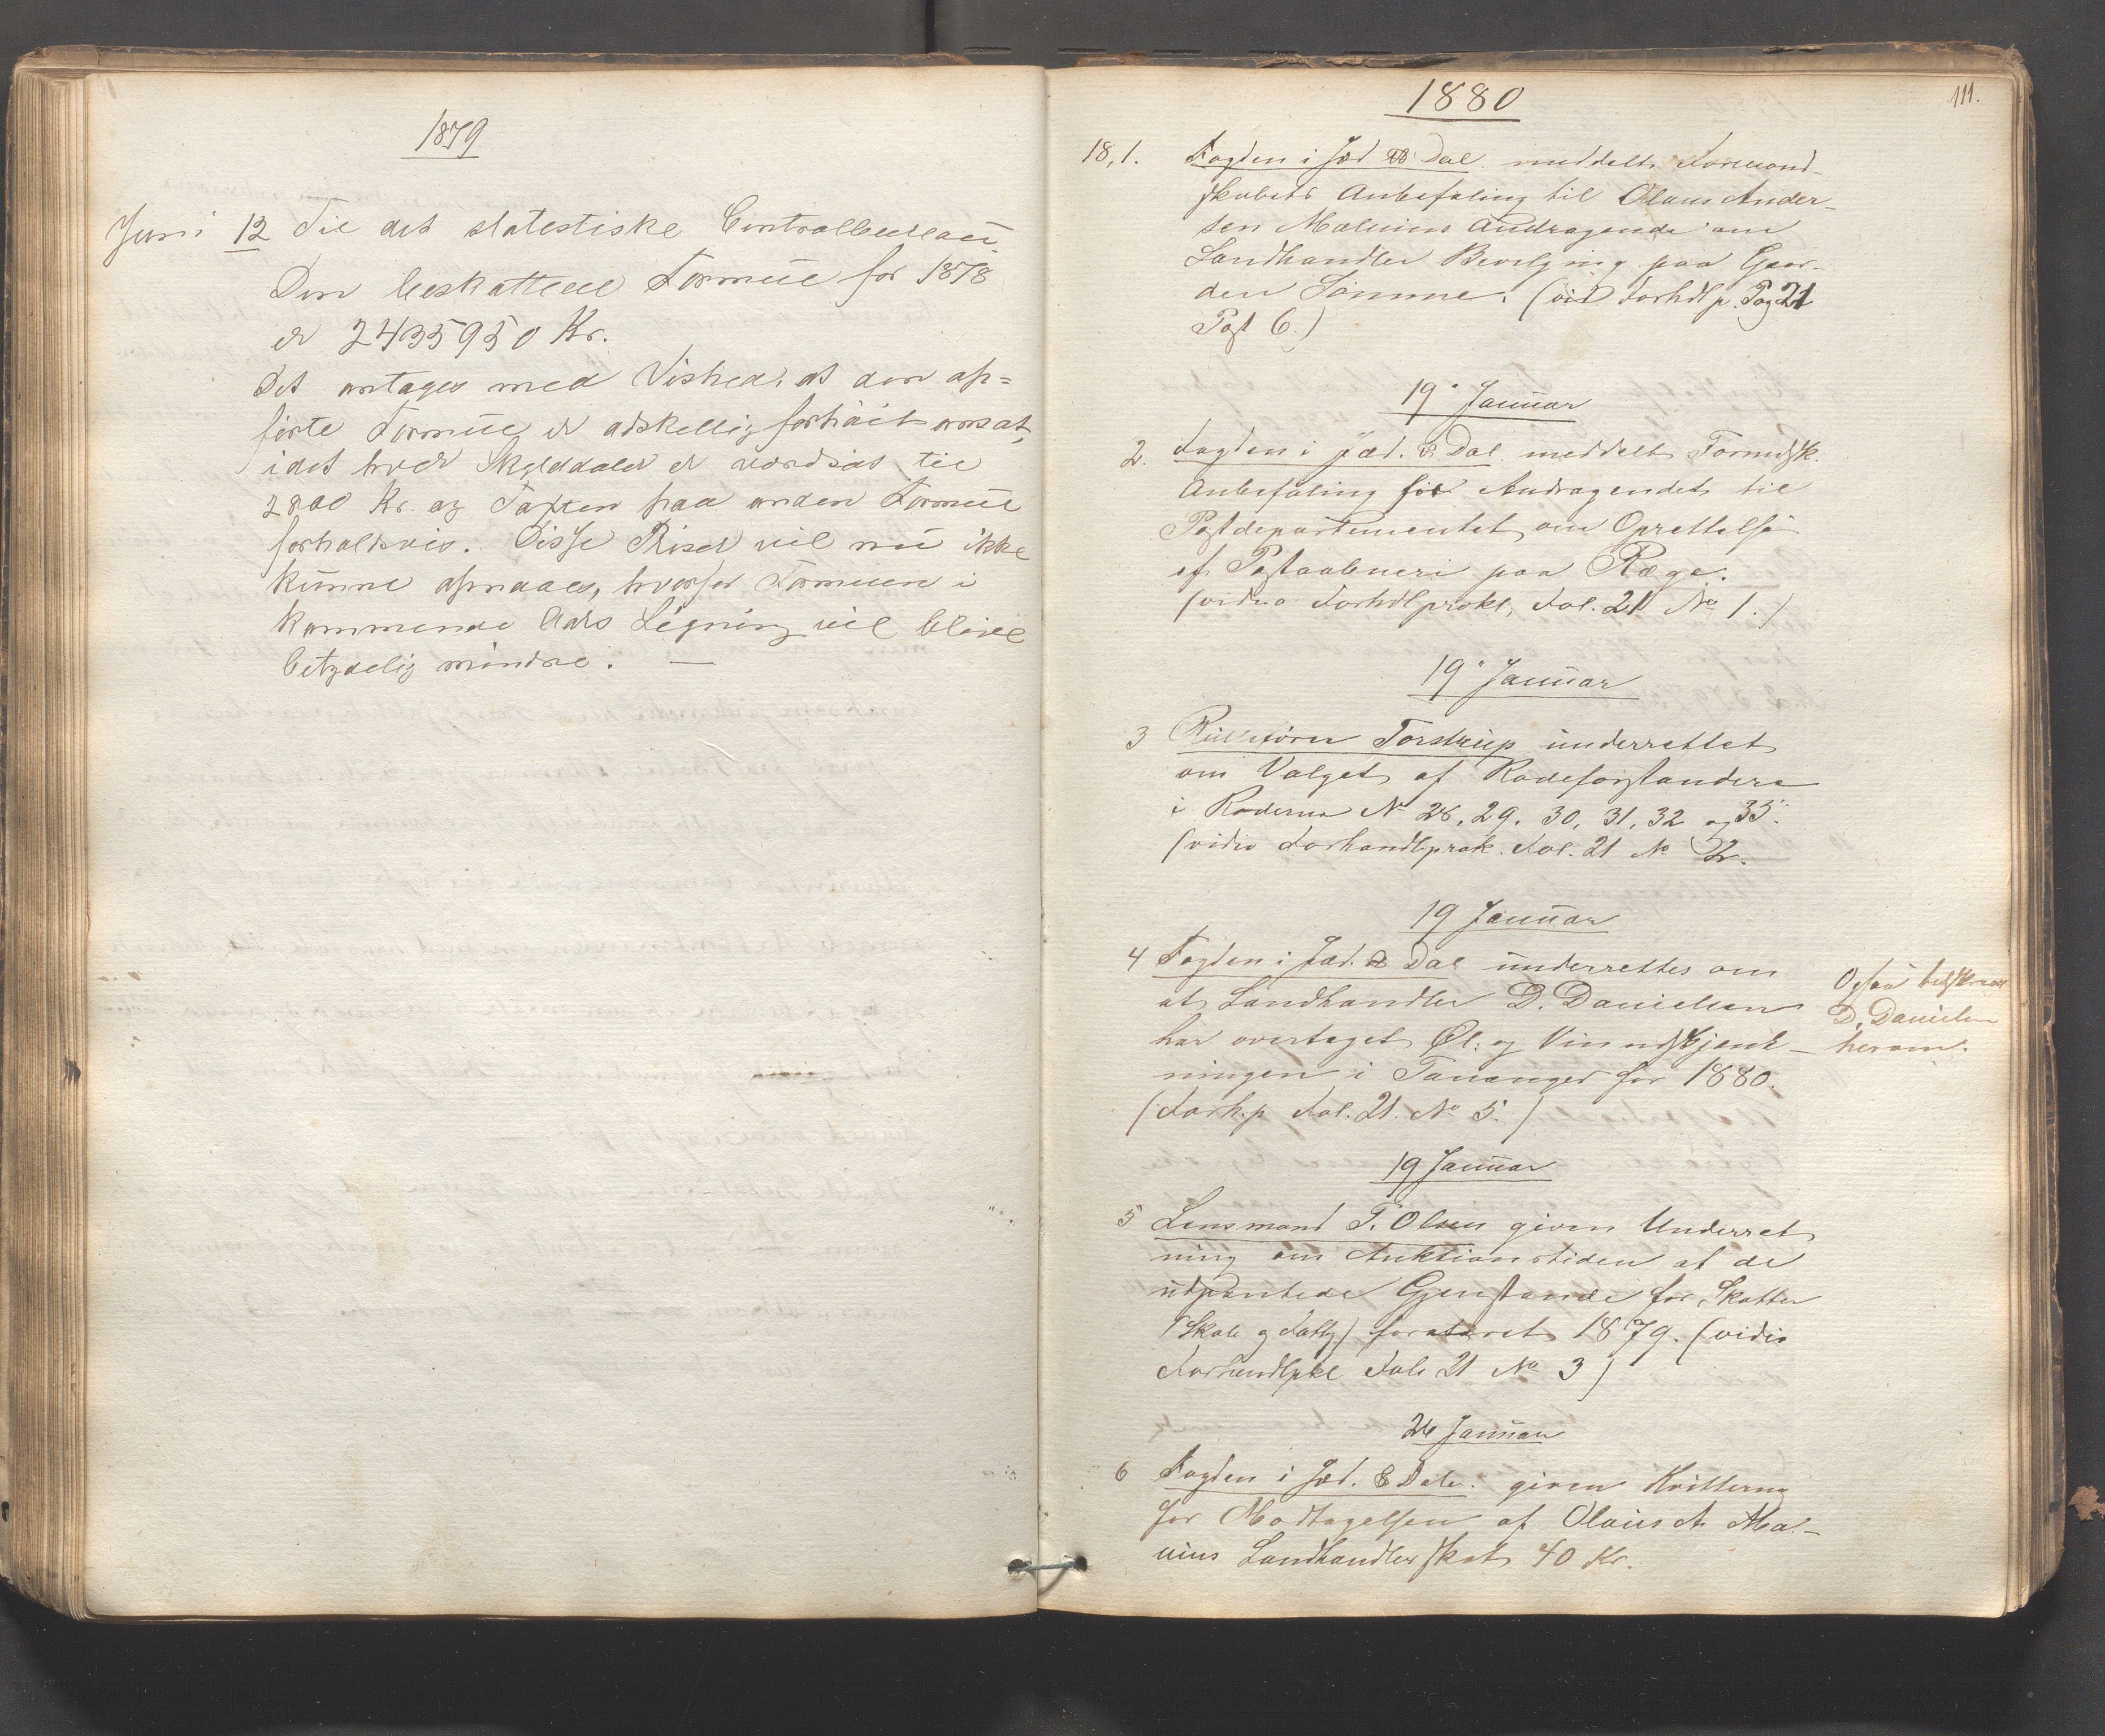 1879
Juni 12 Til det statestiske Centralbureau.
Den beskattede Formue for 1878
er 2435950 Kr.
Det antages med Vished, at den op=
førte Formue er adskellig forhøit ansat,
idet hver Skylddaler er værdsat til
2800 Kr. og Taxten paa anden Formue
forholdsvis. Disse Priser vil nu ikke
kunne opnaaes, hvorfor Formuen i
kommende Aars Ligning vil blive
betydelig mindre. —
111.
1880
18,1. Fogden i Jæd & Dal. meddelt Formand-
skabets Anbefaling til Olaus Ander-
sen Malmins Andragende om
Landhandler Bevilgning paa Gaar-
den Sømme. (vid Forhdlp. Pag 21
Post 6.)
19 Januar
2. Fogden i Jæd. & Dal. meddelt Formdsk.
Anbefaling for Andragendet til
Postdepartementet om Oprettelse
af Postaabneri paa Ræge.
(vidio Forhdlprokl, Fol. 21 No 1.)
19 Januar
3 Torstrup underrettet
om Valget af Rodeforstandere
i Roderne No 26, 29, 30, 31, 32 og 35.
(vidio Forhandlprok. Fol. 21 No 2.
19 Januar
4 Fogden i Jæd. & Dal underrettes om
at Landhandler D. Danielsen
har overtaget Øl: og Vinudskjenk-
ningen i Tananger for 1880.
(Forh.p Fol. 21. No 5.)
Ogsaa tilskrevet
D. Danielsen
herom.
19 Januar
5 Lensmand T. Olsen given Underret
ning om Auktionstiden af de
udpantede Gjenstande for Skatter
(Skole og Fattg) forataret 1879. (vidio
Forhandlpkl Fol: 21 No 3)
26 Januar
6 Fogden i Jæd. & Dale. given Kvittering
for Modtagelsen af Olaus A. Mal-
mins Landhandlerskat 40 Kr.